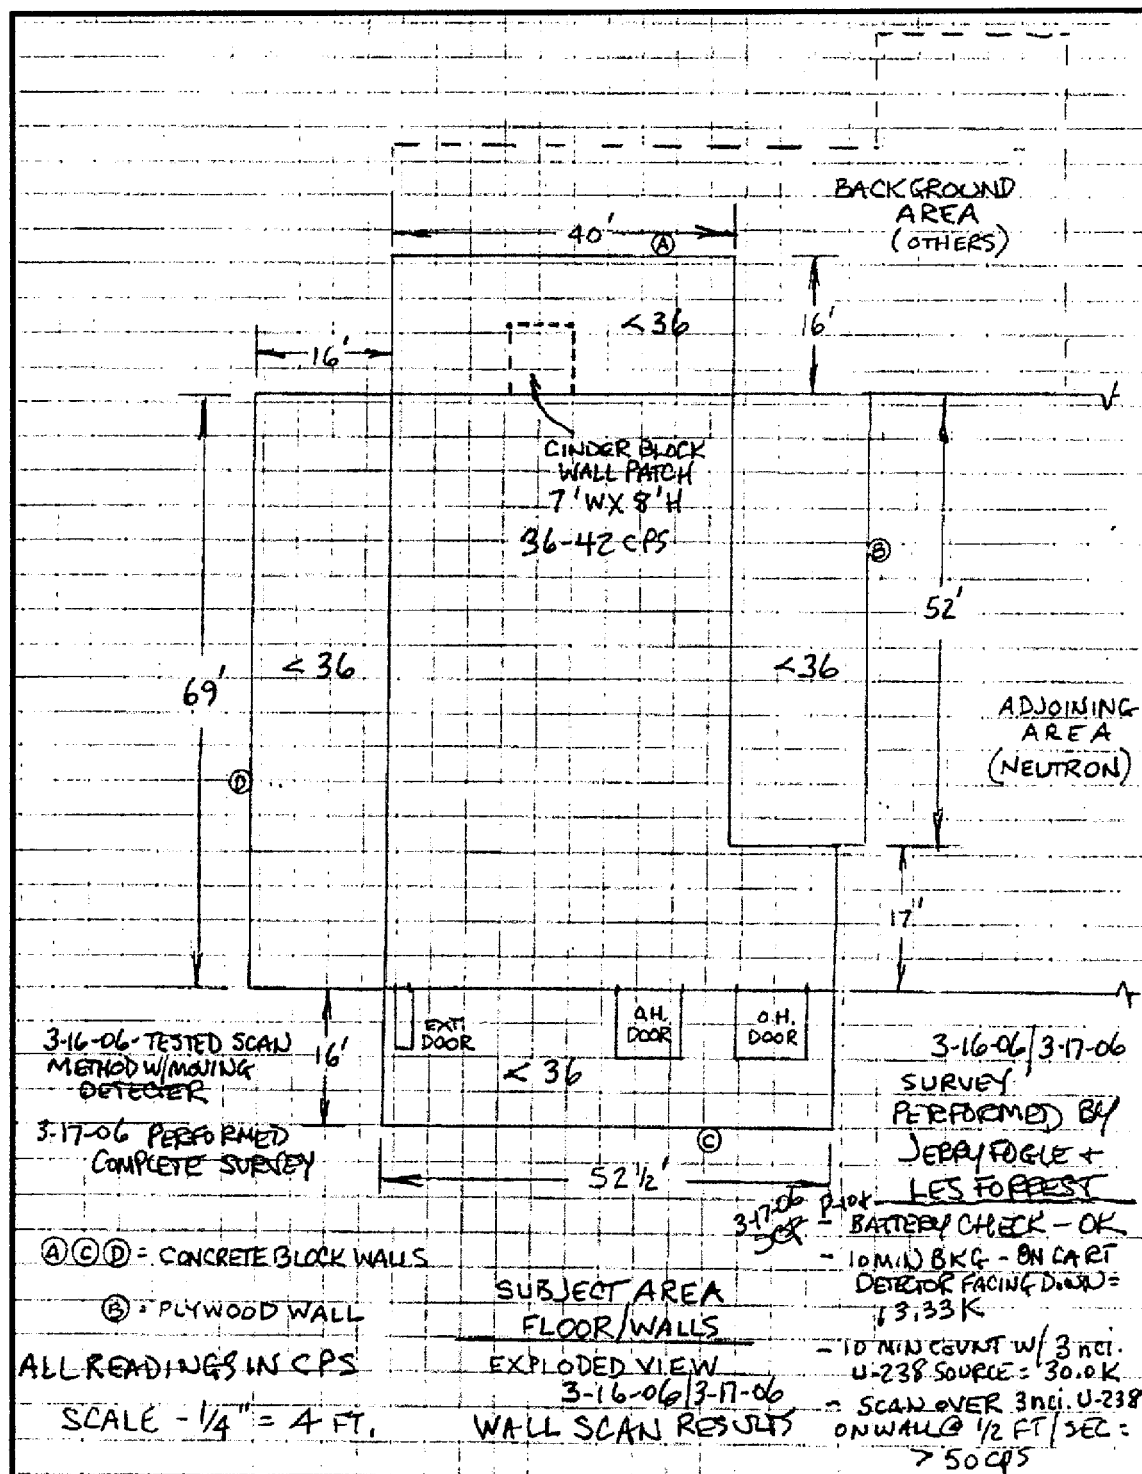 BACKGROUND
AREA
(OTHERS)
40'
Ⓐ
<36
16'
16'
CINDER BLOCK
WALL PATCH
7'W X 8'H
36-42 CPS
Ⓑ
52'
<36
<36
69'
ADJOINING
AREA
(NEUTRON)
Ⓓ
17'
EXT.
DOOR
O.H.
DOOR
O.H.
DOOR
16'
<36
3-16-06 - TESTED SCAN
METHOD W/MOVING
DETECTER
3-17-06 PERFORMED
COMPLETE SURVEY
Ⓒ
52 1/2'
3-16-06/3-17-06
SURVEY
PERFORMED BY
JERRY FOGLE +
LES FORREST
3-17-06
- BATTERY CHECK - OK
- 10 MIN BKG - ON CART
DETECTOR FACING DOWN =
13.33K
- 10 MIN COUNT W/ 3 nCi.
U-238 SOURCE = 30.0K
- SCAN OVER 3nCi. U-238
ON WALL @ 1/2 FT/SEC =
> 50 CPS
Ⓐ Ⓒ Ⓓ = CONCRETE BLOCK WALLS
Ⓑ = PLYWOOD WALL
ALL READINGS IN CPS
SCALE - 1/4" = 4 FT.
SUBJECT AREA
FLOOR/WALLS
EXPLODED VIEW
3-16-06/3-17-06
WALL SCAN RESULTS